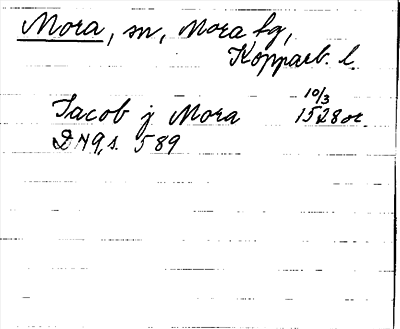 Mora, sn, Mora fg,
Kopparb. l.
Jacob j Mora 10/3 1528 or.
DN 9, s. 589